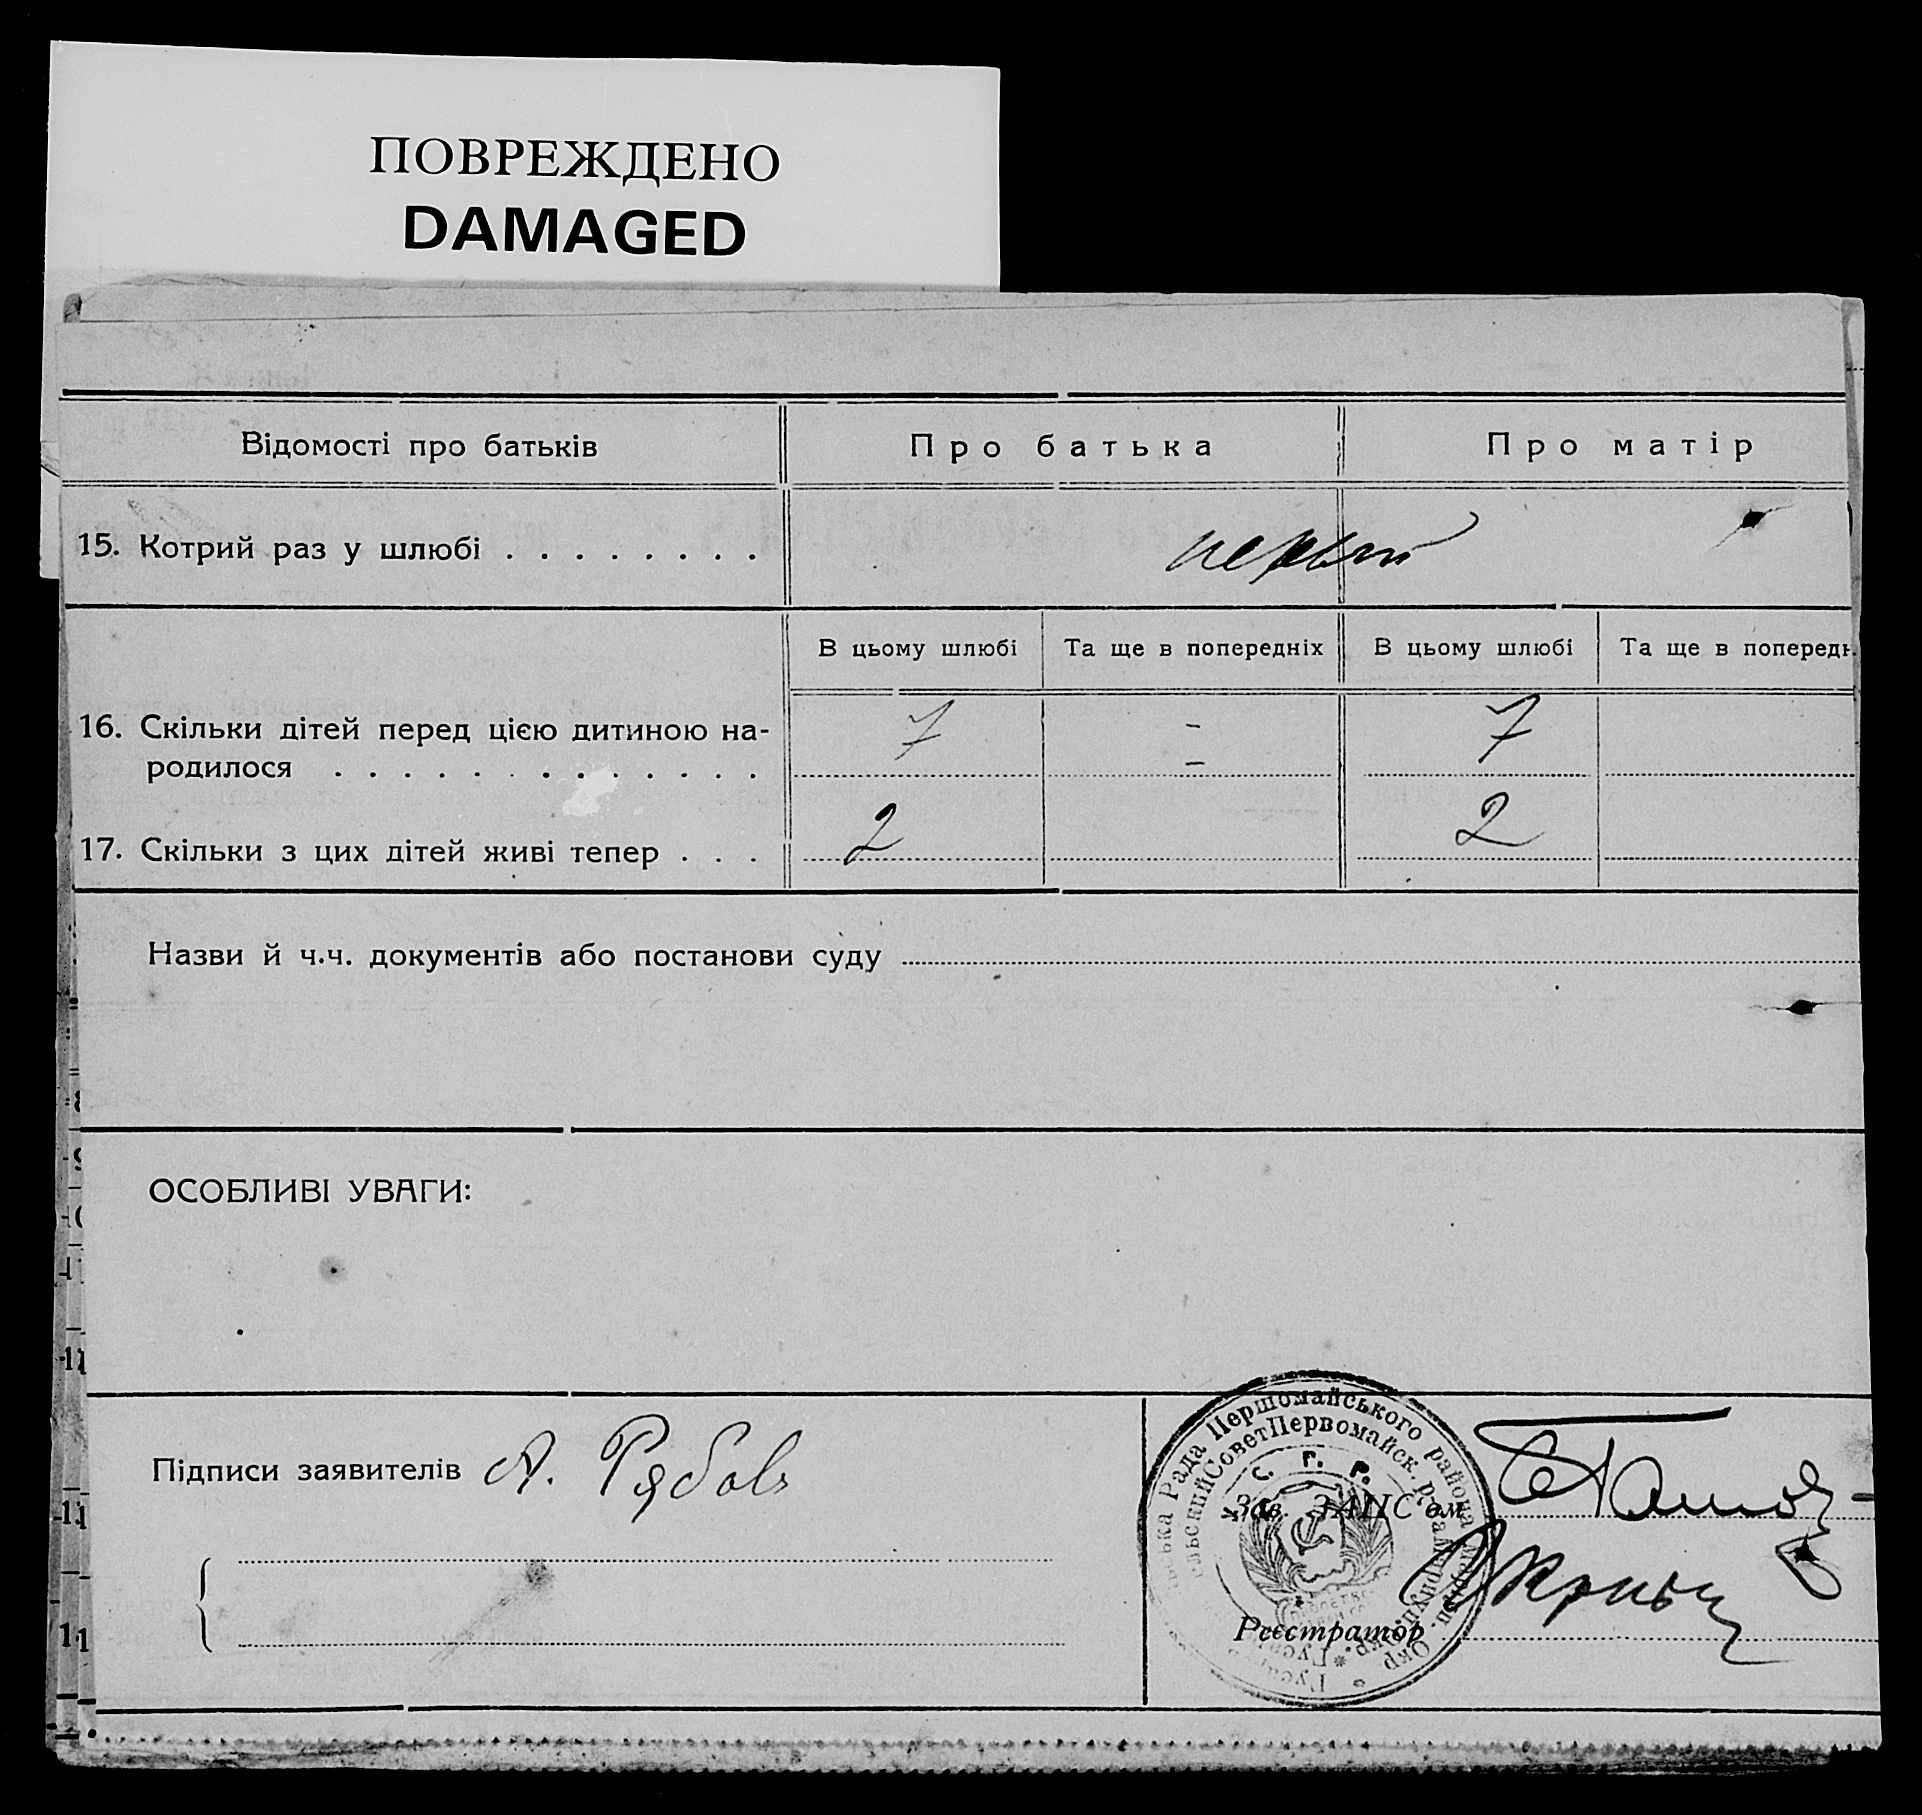 ПОВРЕЖДЕНО
DAMAGED
Відомості про батьків
Про батька
Про матір
15. Котрий раз у шлюбі . . . . . . . .
первый
В цьому шлюбі
Та ще в попередніх
В цьому шлюбі
Та ще в попередн
16. Скільки дітей перед цією дитиною на-
родилося . . . . . . . . . . . . .
7
-
-
7
17. Скільки з цих дітей живі тепер . . .
2
2
Назви й ч.ч. документів або постанови суду
ОСОБЛИВІ УВАГИ:
Підписи заявителів А. Рябов
Рада Першомайського района Маріюп. Окр.
сельскийСоветПервомайск. р-на Мариуп. Окр.
У. С. Р. Р.
Зав. ЗАПС'ом
Реєстратор